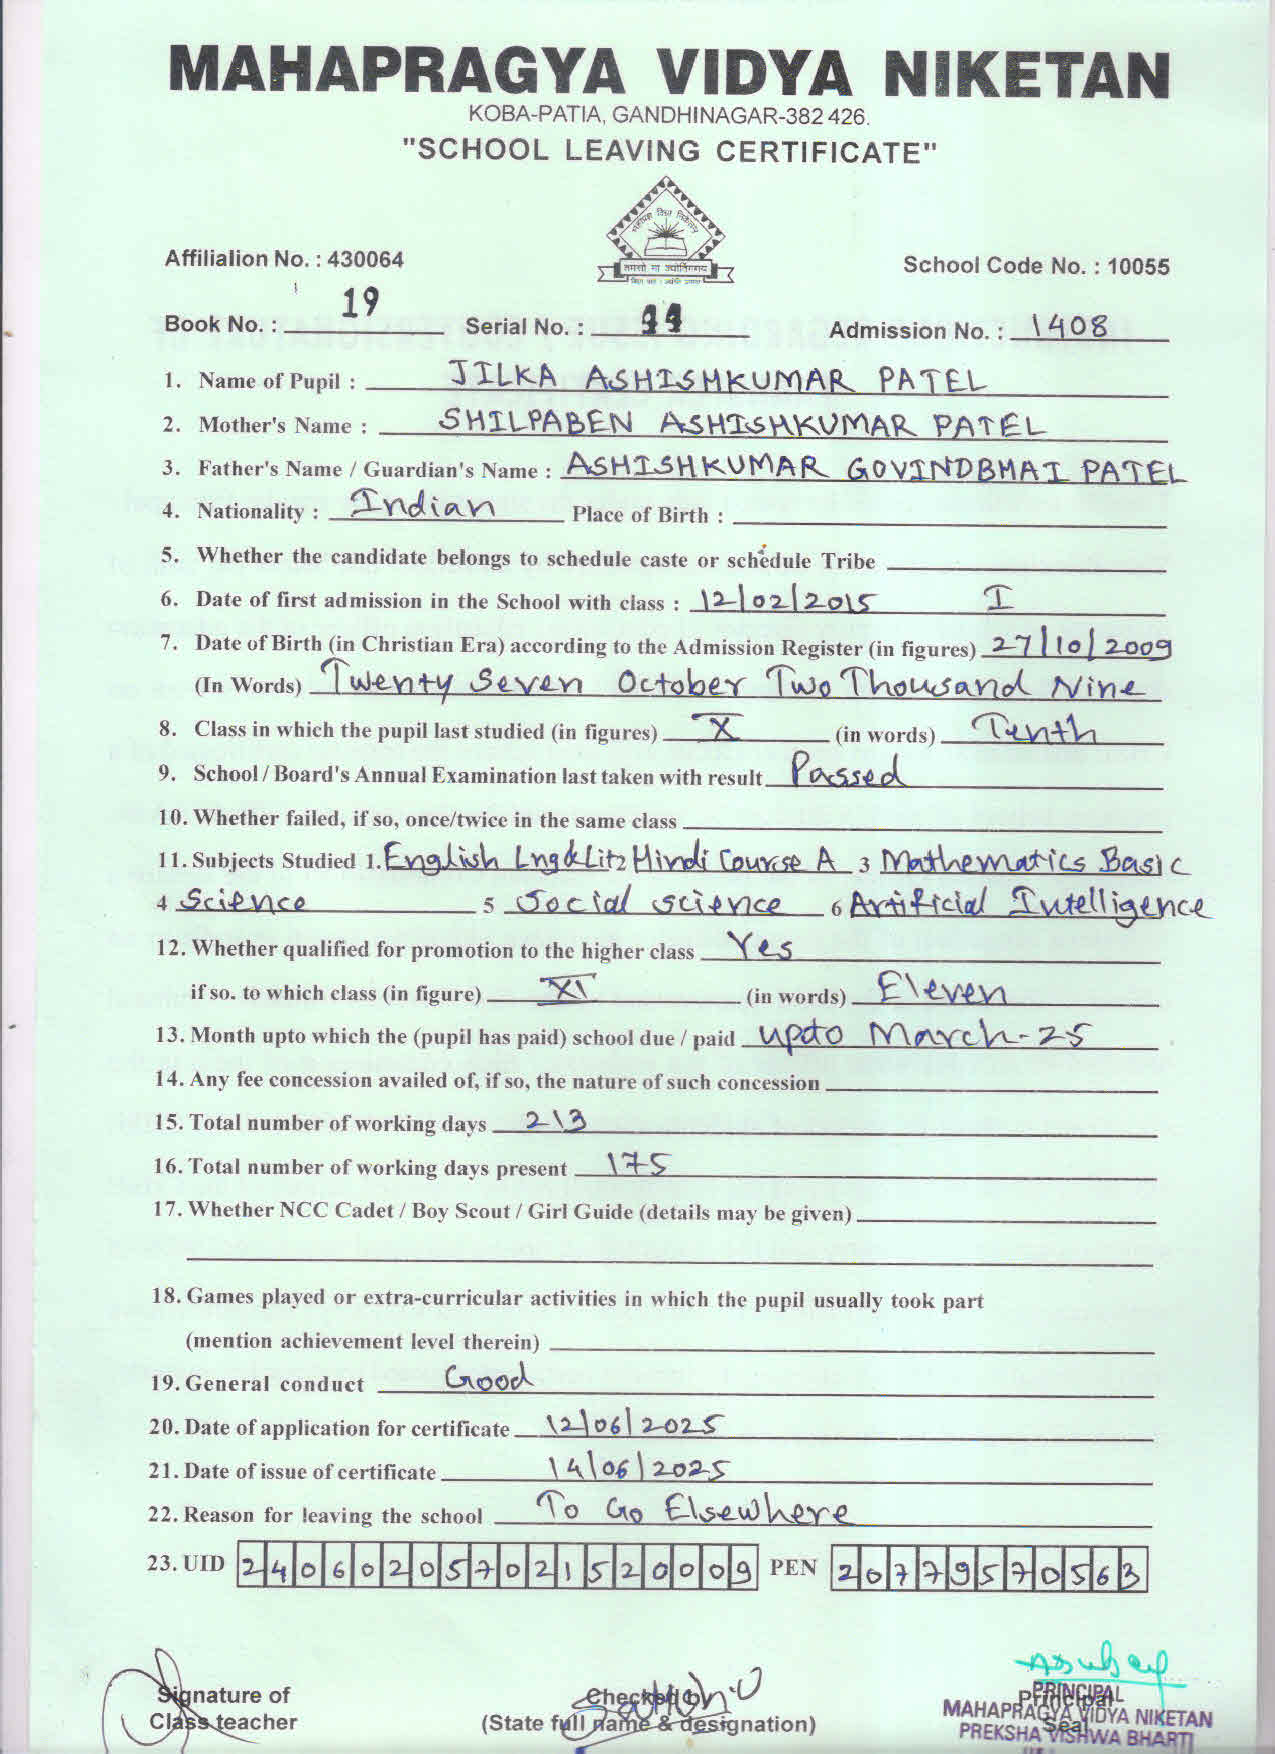 MAHAPRAGYA VIDYA NIKETAN
KOBA-PATIA, GANDHINAGAR-382 426.
"SCHOOL LEAVING CERTIFICATE"
महाप्रज्ञ विद्या निकेतन
तमसो मा ज्योतिर्गमय
Affilialion No. : 430064
School Code No. : 10055
Book No. : 19 Serial No. : 44 Admission No. : 1408
1. Name of Pupil : JILKA ASHISHKUMAR PATEL
2. Mother's Name : SHILPABEN ASHISHKUMAR PATEL
3. Father's Name / Guardian's Name : ASHISHKUMAR GOVINDBHAI PATEL
4. Nationality : Indian Place of Birth :
5. Whether the candidate belongs to schedule caste or schedule Tribe
6. Date of first admission in the School with class : 12/02/2015 I
7. Date of Birth (in Christian Era) according to the Admission Register (in figures) 27/10/2009
(In Words) Twenty Seven October Two Thousand Nine
8. Class in which the pupil last studied (in figures) X (in words) Tenth
9. School / Board's Annual Examination last taken with result Passed
10. Whether failed, if so, once/twice in the same class
11. Subjects Studied 1. English Lng&Lit 2 Hindi Course A 3 Mathematics Basic
4 Science 5 Social science 6 Artificial Intelligence
12. Whether qualified for promotion to the higher class Yes
if so. to which class (in figure) XI (in words) Eleven
13. Month upto which the (pupil has paid) school due / paid upto March-25
14. Any fee concession availed of, if so, the nature of such concession
15. Total number of working days 213
16. Total number of working days present 175
17. Whether NCC Cadet / Boy Scout / Girl Guide (details may be given)
18. Games played or extra-curricular activities in which the pupil usually took part
(mention achievement level therein)
19. General conduct Good
20. Date of application for certificate 12/06/2025
21. Date of issue of certificate 14/06/2025
22. Reason for leaving the school To Go Elsewhere
23. UID 240602057021520009 PEN 20779570563
Signature of
Class teacher
Checked by
(State full name & designation)
Principal
Seal
PRINCIPAL
MAHAPRAGYA VIDYA NIKETAN
PREKSHA VISHWA BHARTI